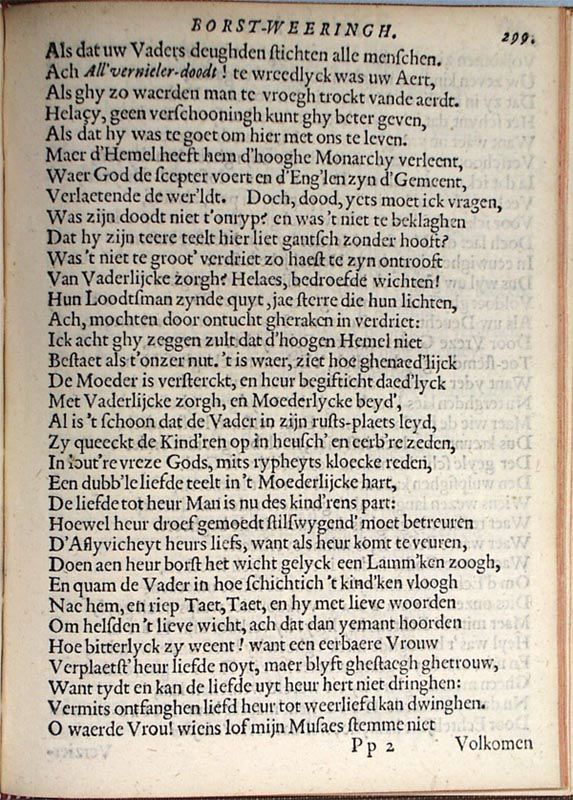 BORST-WEERINGH. 299.
Als dat uw Vaders deughden ſtichten alle menſchen.
Ach All'vernieler-doodt! te wreedlyck was uw Aert,
Als ghy zo waerden man te vroegh trockt vande aerdt.
Helaçy, geen verſchooningh kunt ghy beter geven,
Als dat hy was te goet om hier met ons te leven.
Maer d'Hemel heeft hem d'hooghe Monarchy verleent,
Waer God de ſcepter voert en d'Eng'len zyn d'Gemeent,
Verlaetende de wer'ldt. Doch, dood, yets moet ick vragen,
Was zijn doodt niet t'onryp? en was 't niet te beklaghen
Dat hy zijn teere teelt hier liet gantſch zonder hooft?
Was 't niet te groot' verdriet zo haeſt te zyn ontrooft
Van Vaderlijcke zorgh? Helaes, bedroefde wichten!
Hun Loodtſman zynde quyt, jae ſterre die hun lichten,
Ach, mochten door ontucht gheraken in verdriet:
Ick acht ghy zeggen zult dat d'hoogen Hemel niet
Beſtaet als t'onzer nut. 't is waer, ziet hoe ghenaed'lijck
De Moeder is verſterckt, en heur begifticht daed'lyck
Met Vaderlijcke zorgh, en Moederlycke beyd',
Al is 't ſchoon dat de Vader in zijn ruſts-plaets leyd,
Zy queeckt de Kind'ren op in heuſch' en eerb're zeden,
In ſout're vreze Gods, mits rypheyts kloecke reden,
Een dubb'le liefde teelt in 't Moederlijcke hart,
De liefde tot heur Man is nu des kind'rens part:
Hoewel heur droef gemoedt ſtilſwygend' moet betreuren
D'Aflyvicheyt heurs liefs, want als heur komt te veuren,
Doen aen heur borſt het wicht gelyck een Lamm'ken zoogh,
En quam de Vader in hoe ſchichtich 't kind'ken vloogh
Nae hem, en riep Taet, Taet, en hy met lieve woorden
Om helſden 't lieve wicht, ach dat dan yemant hoorden
Hoe bitterlyck zy weent! want een eerbaere Vrouw
Verplaetſt' heur liefde noyt, maer blyft gheſtaegh ghetrouw,
Want tydt en kan de liefde uyt heur hert niet dringhen:
Vermits ontfanghen liefd heur tot weerliefd kan dwinghen.
O waerde Vrou! wiens lof mijn Muſaes ſtemme niet
Pp 2 Volkomen